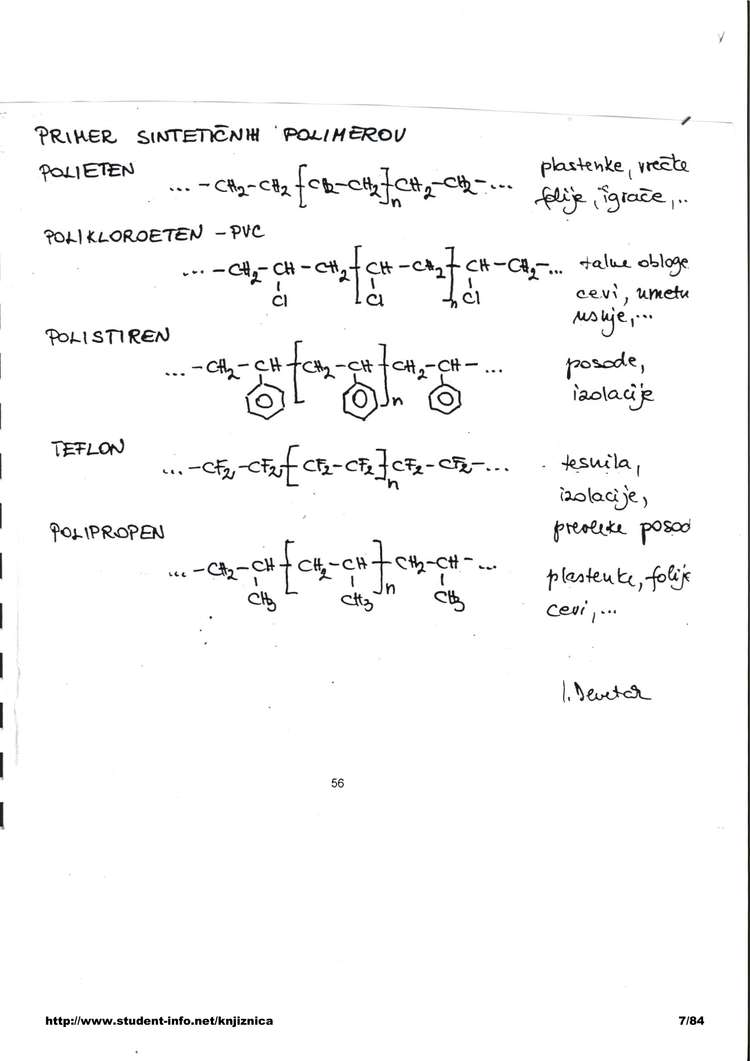 PRIMER SINTETIČNIH POLIMEROV
POLIETEN
... -CH2-CH2-[CH2-CH2]n-CH2-CH2-... plastenke, vrečke
folije, igrače, ..
POLIKLOROETEN - PVC
... -CH2-CH-CH2-[CH-CH2]n-CH-CH2-... talne obloge
Cl Cl Cl cevi, umetu
usnje,...
POLISTIREN
... -CH2-CH-[CH2-CH]n-CH2-CH-... posode,
izolacije
TEFLON
... -CF2-CF2-[CF2-CF2]n-CF2-CF2-... tesnila,
izolacije,
prevleke posod
POLIPROPEN
... -CH2-CH-[CH2-CH]n-CH2-CH-... plastenke, folije
CH3 CH3 CH3 cevi,...
I. Devetak
56
http://www.student-info.net/knjiznica 7/84